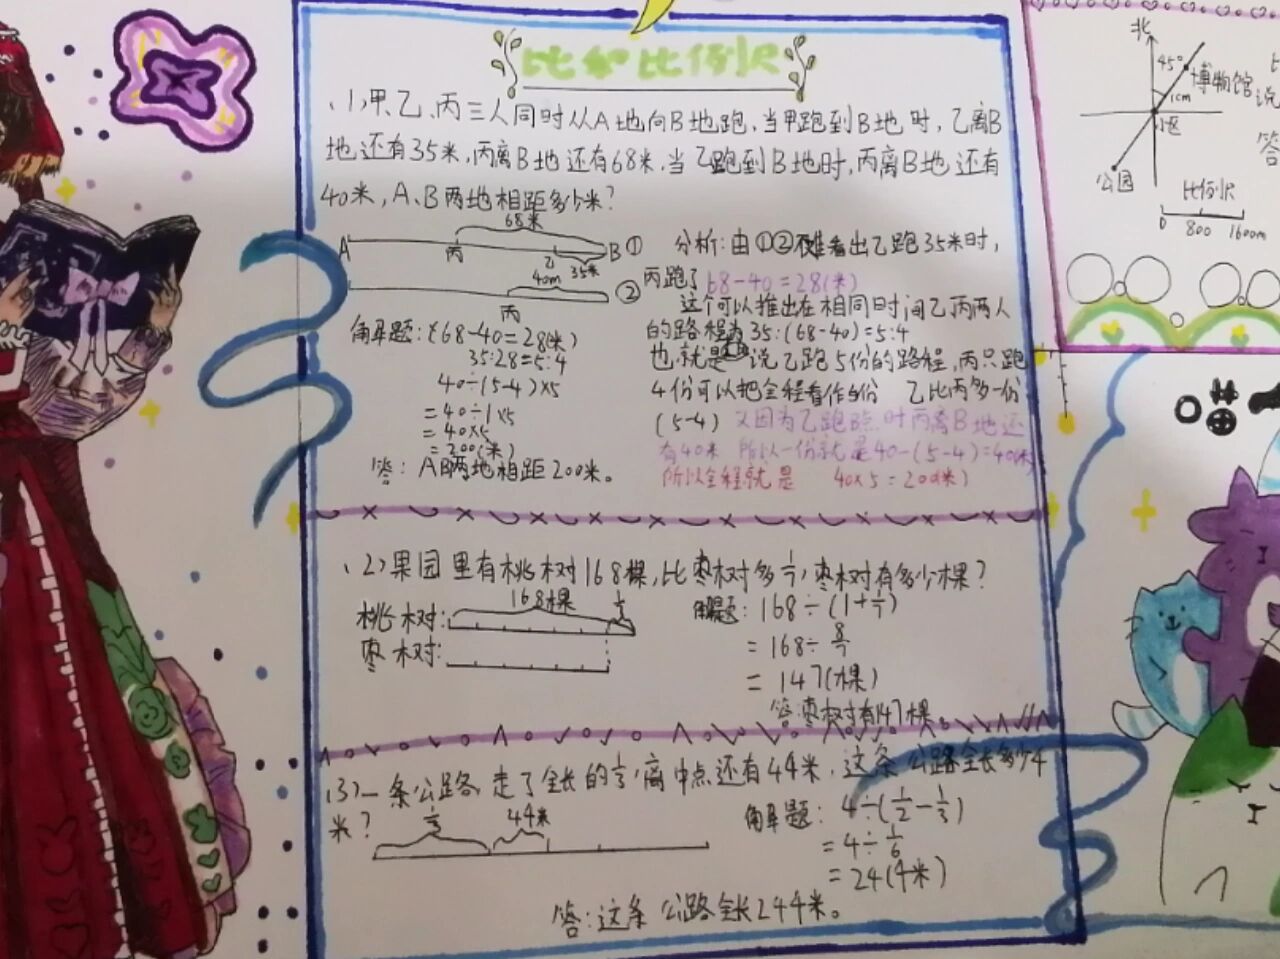 比和比例尺
(1)甲、乙、丙三人同时从A地向B地跑,当甲跑到B地时,乙离B
地还有35米,丙离B地还有68米,当乙跑到B地时,丙离B地还有
40米,A、B两地相距多少米?
68米
A 丙 乙 B ①
35米
40m
②
丙
解题:(68-40=28(米)
35:28=5:4
40÷(5-4)×5
=40÷1×5
=40×5
=200(米)
答:AB两地相距200米。
分析:由①②不难看出乙跑35米时,
丙跑了68-40=28(米)
这个可以推出在相同时间乙丙两人
的路程为35:(68-40)=5:4
也就是说乙跑5份的路程,丙只跑
4份可以把全程看作5份 乙比丙多一份
(5-4) 又因为乙跑B点时丙离B地还
有40米 所以一份就是40-(5-4)=40(米)
所以全程就是 40×5=200(米)
(2)果园里有桃树168棵,比枣树多1/7,枣树有多少棵?
168棵 1/7
桃树:
枣树:
解题:168÷(1+1/7)
=168÷8/7
=147(棵)
答:枣树有147棵
(3)一条公路,走了全长的1/3,离中点还有44米,这条公路全长多少4
米?
1/3 44米
解题:4÷(1/2-1/3)
=4÷1/6
=24(4米)
答:这条公路全长244米。
北
45°
博物馆
1cm
小区
公园
比例尺
0 800 1600m
比
说
答